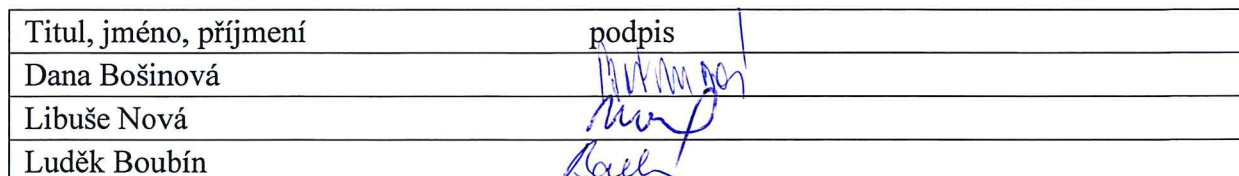 Titul, jméno, příjmení podpis
Dana Bošinová
Libuše Nová
Luděk Boubín